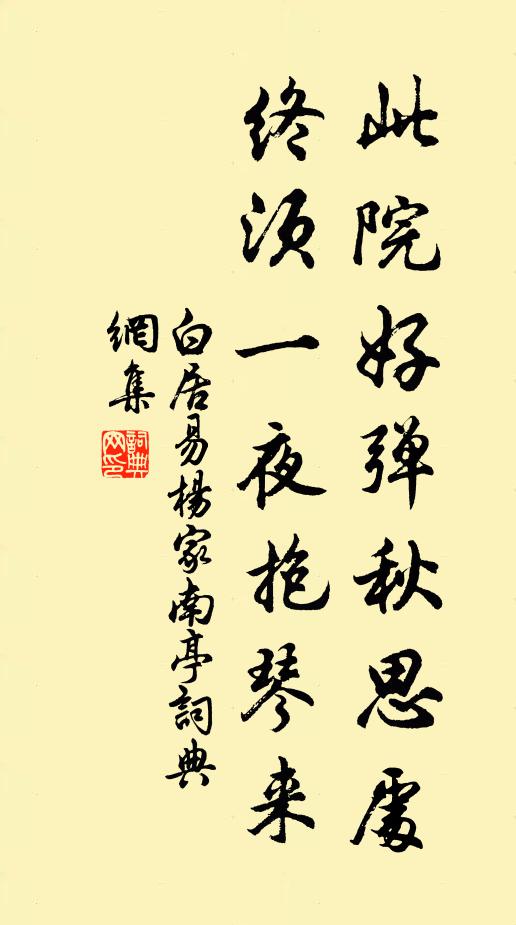 此院好弹秋思處
终须一夜抱琴来
白居易楊家南亭詞典
網集
詞典
网印